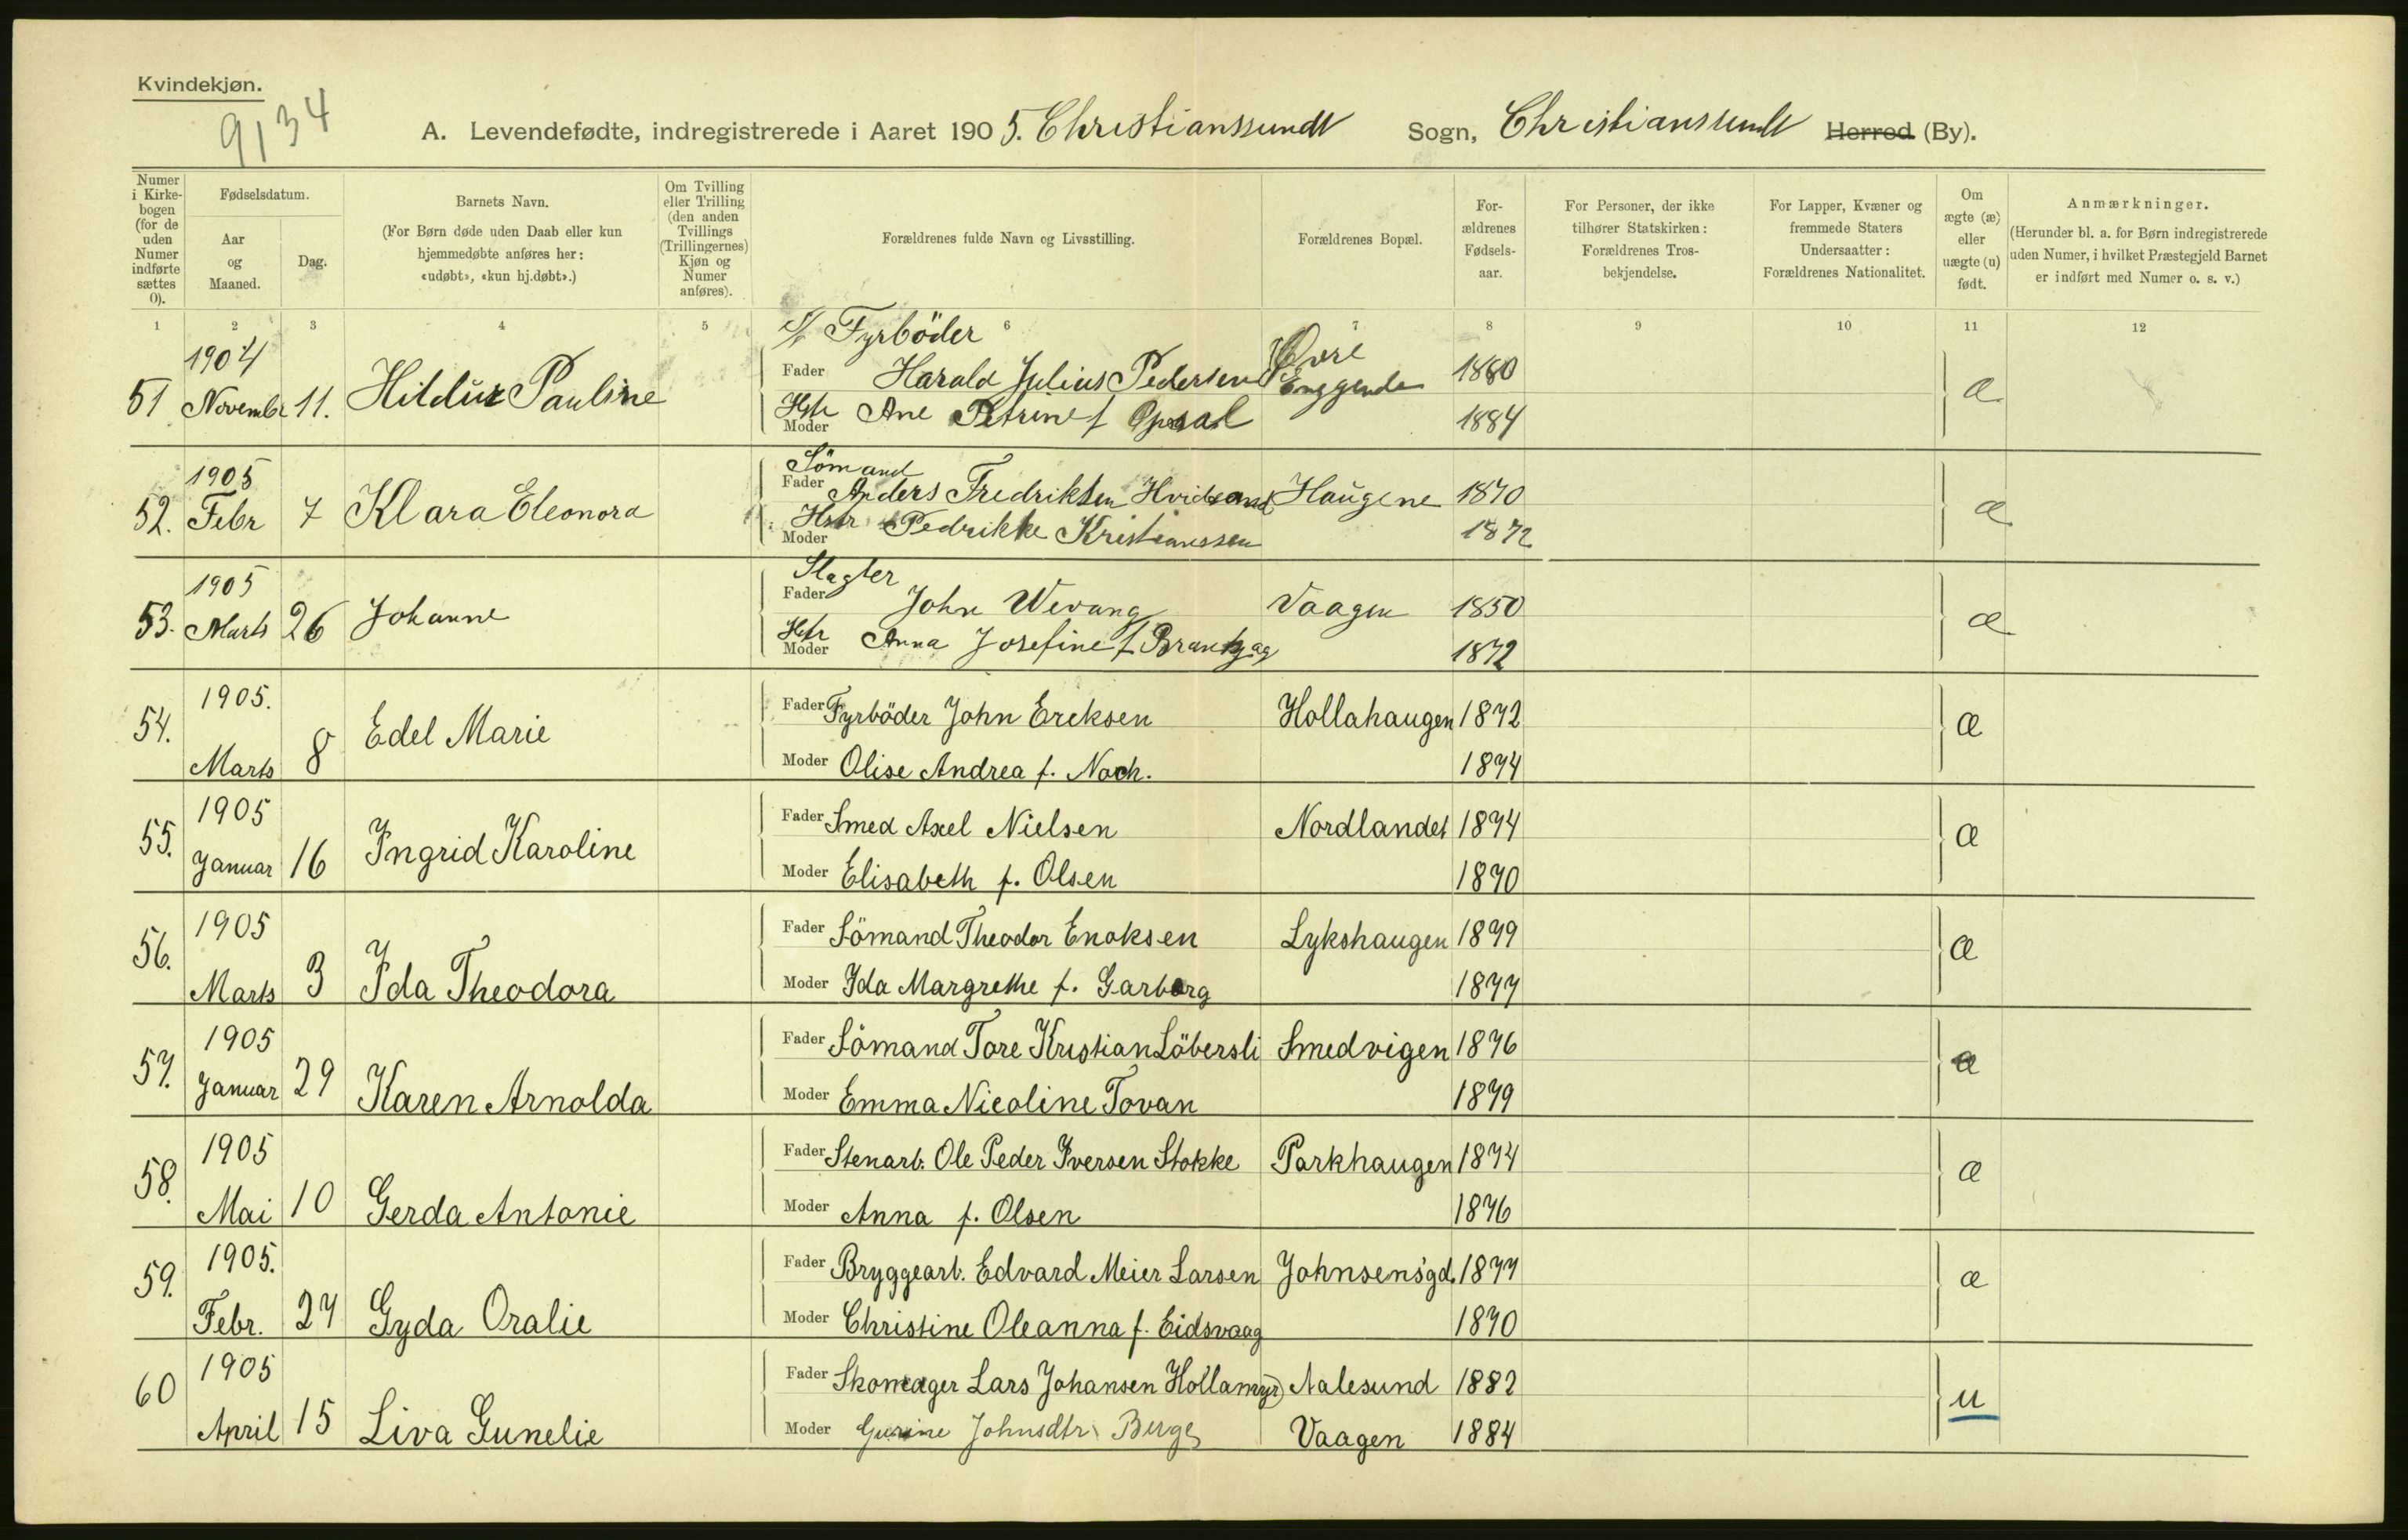 Kvindekjøn.
9134
A. Levendefødte, indregistrerede i Aaret 1905. Christianssund Sogn, Christianssund Herred (By).
Numer i Kirke-bogen (for de uden Numer indførte sættes 0).
Fødselsdatum.
Aar og Maaned.
Dag.
Barnets Navn.
(For Børn døde uden Daab eller kun hjemmedøbte anføres her: «udøbt», «kun hj.døbt».)
Om Tvilling eller Trilling (den anden Tvillings (Trillingernes) Kjøn og Numer anføres).
Forældrenes fulde Navn og Livsstilling.
Forældrenes Bopæl.
For-ældrenes Fødsels-aar.
For Personer, der ikke tilhører Statskirken: Forældrenes Tros-bekjendelse.
For Lapper, Kvæner og fremmede Staters Undersaatter: Forældrenes Nationalitet.
Om ægte (æ) eller uægte (u) født.
Anmærkninger.
(Herunder bl. a. for Børn indregistrerede uden Numer, i hvilket Præstegjeld Barnet er indført med Numer o. s. v.)
1 2 3 4 5 6 7 8 9 10 11 12
51 1904 Novembr 11. Hildur Pauline
Fyrböder
Fader Harald Julius Pedersen Övre Enggende 1880 æ
Hstr Moder Ane Petrine f Opsal 1884
52. 1905 Febr 7 Klara Eleonora
Sömand
Fader Anders Fredriksen Haugene 1870 æ
Hstr Moder Pedrikke Kristianssen 1872
53. 1905 Marts 26 Johanne
Slagter
Fader John Wevang Vaagen 1850 æ
Hstr Moder Anna Josefine f 1872
54. 1905. Marts 8 Edel Marie
Fader Fyrböder John Ereksen Hollahaugen 1872 æ
Moder Olise Andrea f. Noch. 1874
55. 1905 Januar 16 Ingrid Karoline
Fader Smed Axel Nielsen Nordlandet 1874 æ
Moder Elisabeth f. Olsen 1870
56. 1905 Marts 3 Ida Theodora
Fader Sömand Theodor Enoksen Lykshaugen 1879 æ
Moder Ida Margrethe f. Garborg 1877
57. 1905 Januar 29 Karen Arnolda
Fader Sömand Tore Kristian Löbersli Smedvigen 1876 æ
Moder Emma Nicoline Tovan 1879
58. 1905 Mai 10 Gerda Antonie
Fader Stenarb. Ole Peder Iversen Stokke Parkhaugen 1874 æ
Moder Anna f. Olsen 1876
59. 1905. Febr. 27 Gyda Oralie
Fader Bryggearb. Edvard Meier Larsen Johnsens'gd. 1877 æ
Moder Christine Oleanna f. Eidsvaag 1870
60 1905 April 15 Liva Gunelie
Fader Skomager Lars Johansen Hollamyr) Aalesund 1882 u
Moder Gurine Johnsdtr Berge Vaagen 1884